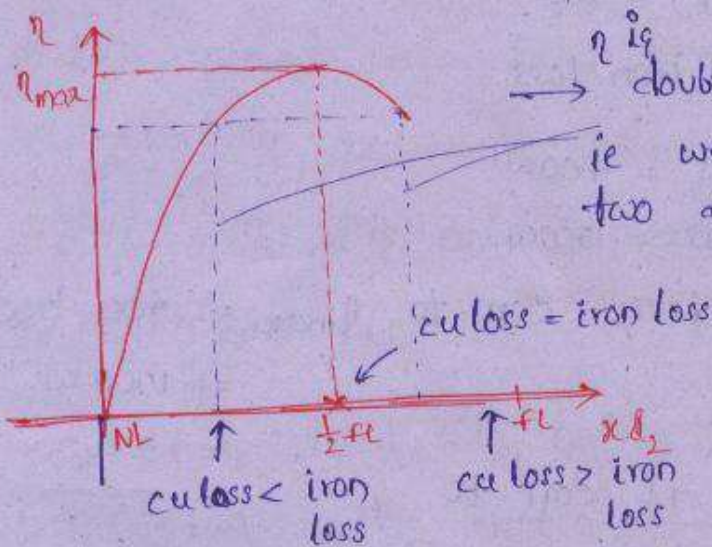 η
ηmax
η is
→ doub
ie w
two
cu loss = iron loss
NL
½ fl
fl
x S₂
cu loss < iron
loss
cu loss > iron
loss